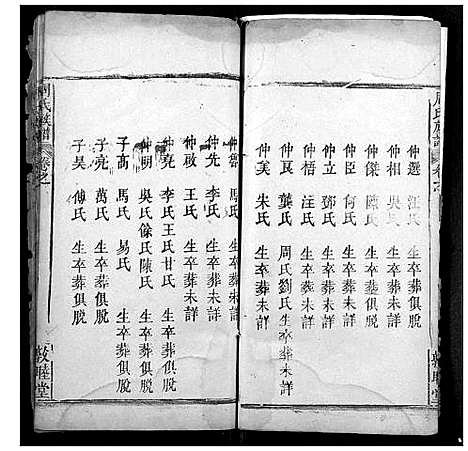 仲選 汪氏 生卒葬俱脫
仲相 吳氏 生卒葬俱脫
仲傑 陳氏 生卒葬俱脫
仲臣 何氏 生卒葬未詳
仲立 鄧氏 生卒葬未詳
仲梧 汪氏 生卒葬未詳
仲良 龔氏 周氏劉氏生卒葬未詳
仲美 朱氏 生卒葬未詳
敦睦堂
周氏族譜
馬氏 生卒葬未詳
仲先 李氏 生卒葬未詳
仲啟 王氏 生卒葬未詳
仲堯 李氏王氏甘氏 生卒葬俱脫
仲明 吳氏徐氏陳氏 生卒葬俱脫
子高 馬氏 易氏 生卒葬俱脫
子亮 萬氏 生卒葬俱脫
子昊 傅氏 生卒葬俱脫
周氏族譜 卷之
敦睦堂